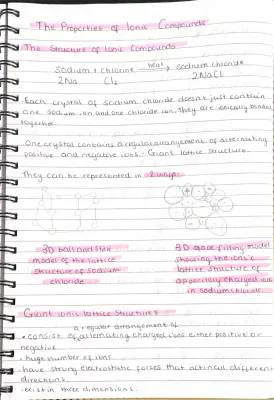 The Properties of Ionic Compounds
The Structure of Ionic Compounds
sodium + chlorine heat→ sodium chloride
2Na Cl₂ 2NaCl
•Each crystal of sodium chloride doesn't just contain
one sodium ion and one chloride ion, they are ionically bonded
together.
•One crystal contains a regular arrangement of alternating
positive and negative ions. - Giant lattice structure.
They can be represented in 2 ways:
3D ball and stick
model of the lattice
structure of sodium
chloride
3D space filling model
showing the ionic
lattice structure of
oppositely charged ions
in sodium chloride.
Giant ionic lattice structures
a regular arrangement of
•consist of alternating charged ions either positive or
negative
•huge number of ions.
•have strong electrostatic forces that act in all different
directions.
•exist in three dimensions.